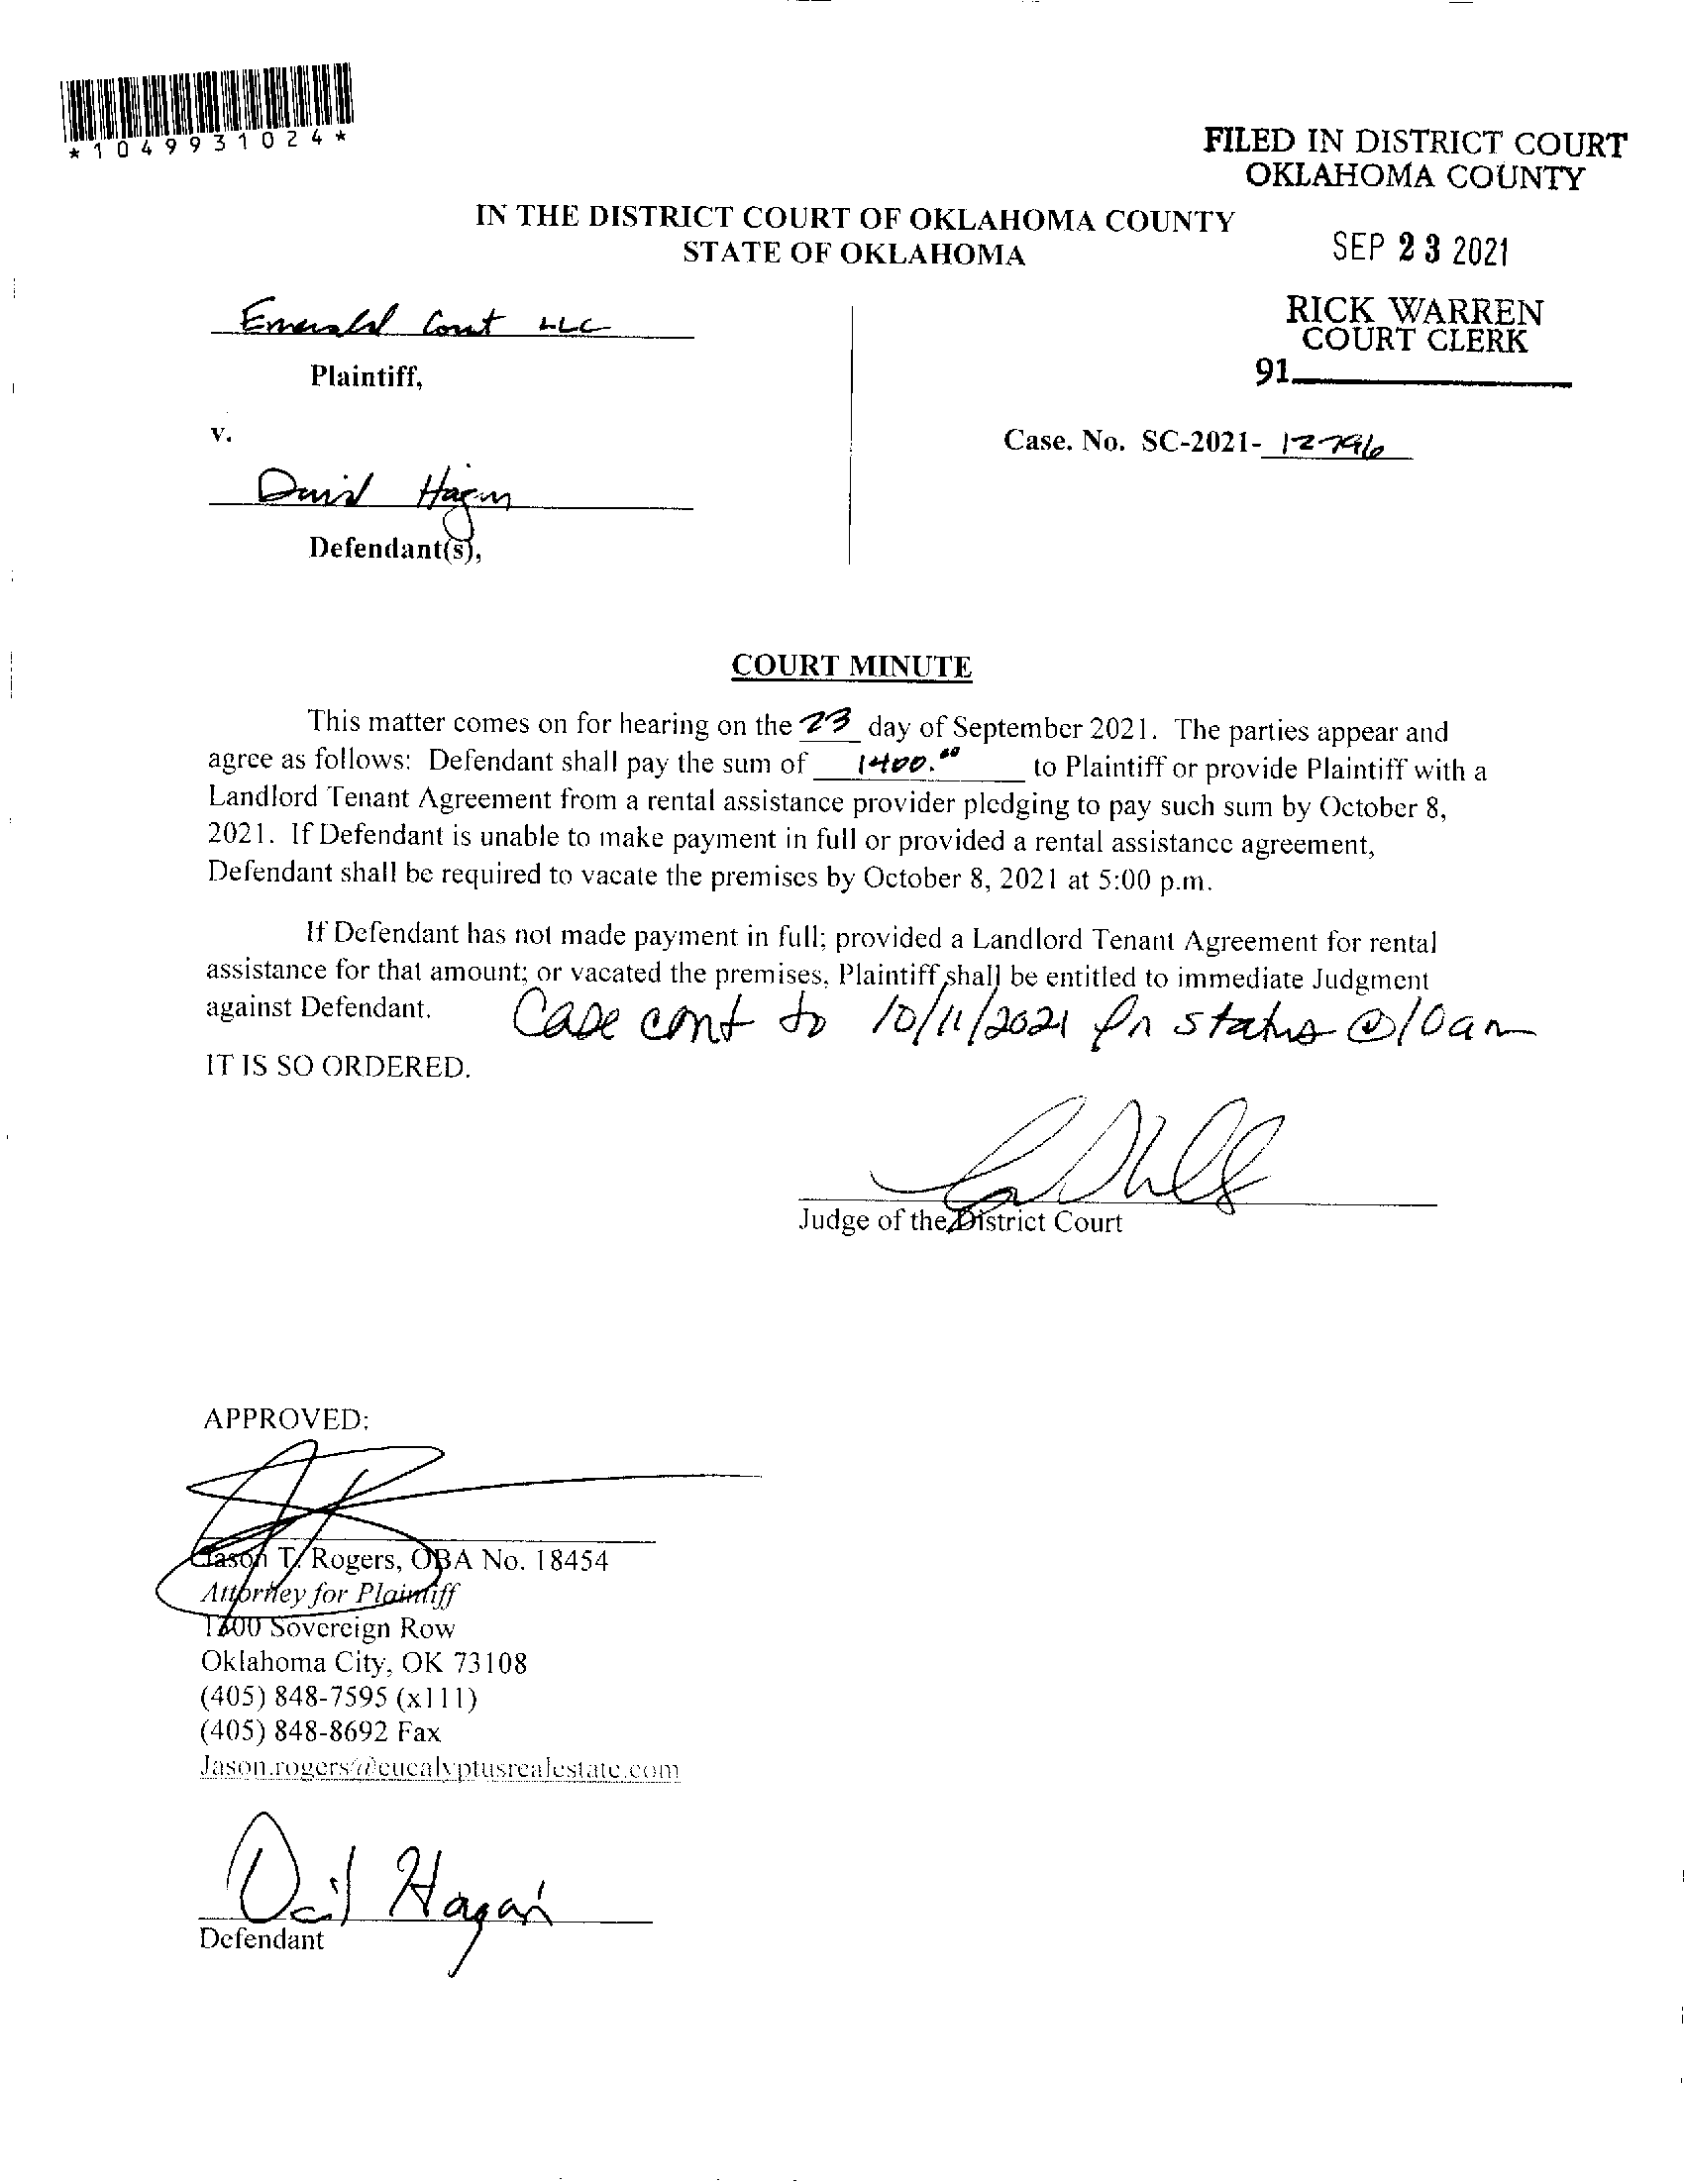 *1049931024*
FILED IN DISTRICT COURT
OKLAHOMA COUNTY
IN THE DISTRICT COURT OF OKLAHOMA COUNTY
STATE OF OKLAHOMA
SEP 23 2021
RICK WARREN
COURT CLERK
91
Emerald Court LLC
Plaintiff,
v.
Case. No. SC-2021- 12796
David Hagan
Defendant(s),
COURT MINUTE
This matter comes on for hearing on the 23 day of September 2021. The parties appear and
agree as follows: Defendant shall pay the sum of 1400.00 to Plaintiff or provide Plaintiff with a
Landlord Tenant Agreement from a rental assistance provider pledging to pay such sum by October 8,
2021. If Defendant is unable to make payment in full or provided a rental assistance agreement,
Defendant shall be required to vacate the premises by October 8, 2021 at 5:00 p.m.
If Defendant has not made payment in full; provided a Landlord Tenant Agreement for rental
assistance for that amount; or vacated the premises, Plaintiff shall be entitled to immediate Judgment
against Defendant. Case cont to 10/11/2021 for status @ 10am
IT IS SO ORDERED.
Judge of the District Court
APPROVED:
Jason T. Rogers, OBA No. 18454
Attorney for Plaintiff
Sovereign Row
Oklahoma City, OK 73108
(405) 848-7595 (x111)
(405) 848-8692 Fax
Jason.rogers@eucalyptusrealestate.com
David Hagan
Defendant